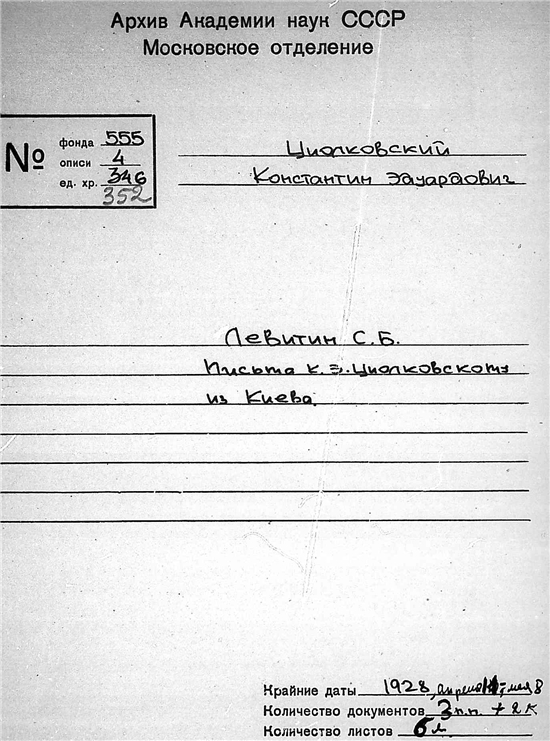 Архив Академии наук СССР
Московское отделение
№
фонда 555
описи 4
ед. хр. 346
352
Циолковский
Константин Эдуардович
Левитин С.Б.
Письма К.Э. Циолковскому
из Киева
Крайние даты 1928, апрель мая 8
Количество документов 3 п.п. + 2 к
Количество листов 6 л.